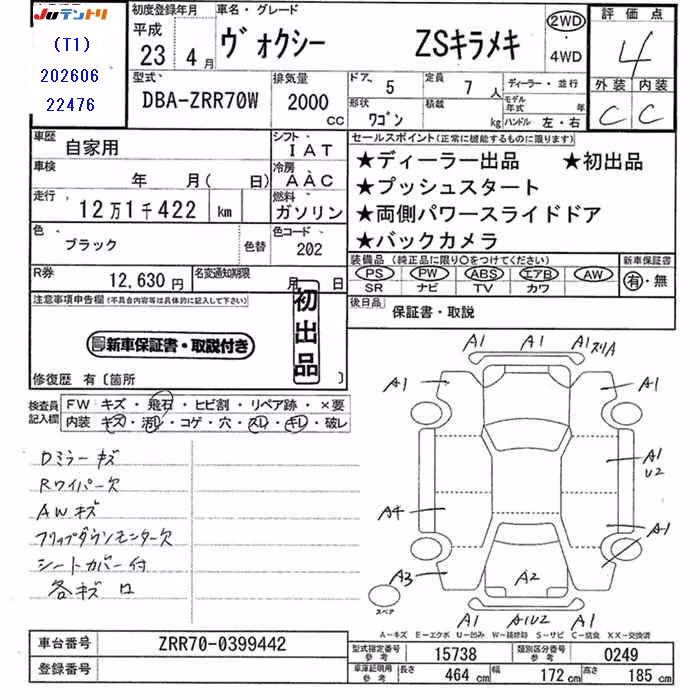 JUテントリ
(T1)
202606
22476
初度登録年月
平成
23 4月
車名・グレード
ヴォクシー ZSキラメキ
2WD
4WD
評価点
4
外装 内装
C C
型式
DBA-ZRR70W
排気量
2000 cc
ドア、 5
定員 7 人
形状 ワゴン
積載 kg
ディーラー・並行
モデル年式 年
ハンドル 左・右
車歴 自家用
シフト IAT
車検 年 月( 日)
冷房 AAC
走行 12万1千422 km
燃料 ガソリン
色 ブラック 色替
色コード 202
R券 12,630円
名変通知期限 月 日
セールスポイント(正常に機能するものに限ります)
★ディーラー出品 ★初出品
★プッシュスタート
★両側パワースライドドア
★バックカメラ
装備品(純正品に限り○をつけてください)
PS PW ABS エアB AW
SR ナビ TV カワ
新車保証書
有・無
後日品
保証書・取説
注意事項申告欄(不具合内容等は具体的に記入して下さい)
新車保証書・取説付き
初出品
修復歴 有〔箇所 〕
検査員記入欄
FW キズ・飛石・ヒビ割・リペア跡・×要
内装 キズ・汚レ・コゲ・穴・スレ・キレ・破レ
Dミラーキズ
Rワイパー欠
AWキズ
フリップダウンモニター欠
シートカバー付
各キズ ロ
A1 A1 A1スリA
A1 A1
A1
U2
A4 A1
A3 A2
A1 A1U2 A1
スペア
A-キズ E-エクボ U-凹み W-補修跡 S-サビ C-腐食 XX-交換済
車台番号 ZRR70-0399442
登録番号
型式指定番号 参考 15738
類別区分番号 参考 0249
車庫証明用 参考 長さ 464 cm 幅 172 cm 高さ 185 cm